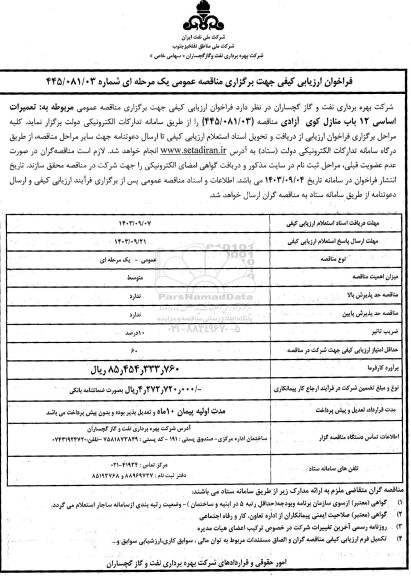 شرکت ملی نفت ایران
شرکت ملی مناطق نفتخیز جنوب
شرکت بهره برداری نفت و گاز گچساران « سهامی خاص »
فراخوان ارزیابی کیفی جهت برگزاری مناقصه عمومی یک مرحله ای شماره ۴۴۵/۰۸۱/۰۳
شرکت بهره برداری نفت و گاز گچساران در نظر دارد فراخوان ارزیابی کیفی جهت برگزاری مناقصه عمومی مربوطه به: تعمیرات
اساسی ۱۲ باب منازل کوی آزادی مناقصه (۴۴۵/۰۸۱/۰۳) را از طریق سامانه تدارکات الکترونیکی دولت برگزار نماید. کلیه
مراحل برگزاری فراخوان ارزیابی از دریافت و تحویل اسناد استعلام ارزیابی کیفی تا ارسال دعوتنامه جهت سایر مراحل مناقصه، از طریق
درگاه سامانه تدارکات الکترونیکی دولت (ستاد) به آدرس www.setadiran.ir انجام خواهد شد. لازم است مناقصه‌گران در صورت
عدم عضویت قبلی، مراحل ثبت نام در سایت مذکور و دریافت گواهی امضای الکترونیکی را جهت شرکت در مناقصه محقق سازند. تاریخ
انتشار فراخوان در سامانه تاریخ ۱۴۰۳/۰۹/۰۴ می باشد. اطلاعات و اسناد مناقصه عمومی پس از برگزاری فرآیند ارزیابی کیفی و ارسال
دعوتنامه از طریق سامانه ستاد به مناقصه گران ارسال خواهد شد.
مهلت دریافت اسناد استعلام ارزیابی کیفی ۱۴۰۳/۰۹/۰۷
مهلت ارسال پاسخ استعلام ارزیابی کیفی ۱۴۰۳/۰۹/۲۱
نوع مناقصه عمومی - یک مرحله ای
میزان اهمیت مناقصه متوسط
مناقصه حد پذیرش بالا ندارد
مناقصه حد پذیرش پایین ندارد
ضریب تاثیر ۱۰درصد
حداقل امتیاز ارزیابی کیفی جهت شرکت در مناقصه ۶۰
برآورد کارفرما ۸۵٫۴۵۴٫۳۳۳٫۷۶۰ ریال
نوع و مبلغ تضمین شرکت در فرآیند ارجاع کار پیمانکاری ۴٫۲۷۲٫۷۲۰٫۰۰۰/- ریال بصورت ضمانتنامه بانکی
مدت قرارداد، تعدیل و پیش پرداخت مدت اولیه پیمان ۱۰ماه و تعدیل پذیر بوده و بدون پیش پرداخت می باشد
اطلاعات تماس دستگاه مناقصه گزار آدرس شرکت بهره برداری نفت و گاز گچساران
ساختمان اداره مرکزی- صندوق پستی : ۱۹۱ - کد پستی : ۷۵۸۱۸۷۳۸۴۹ -تلفن:۰۷۴۳۱۹۲۴۷۲۰
تلفن های سامانه ستاد : مرکز تماس : ۴۱۹۳۴-۰۲۱
دفتر ثبت نام : ۸۸۹۶۹۷۳۷ و ۸۵۱۹۳۷۶۸
ParsNamadData
پایگاه اطلاع رسانی مناقصه و مزایده
۰۲۱-۸۸۳۴۹۶۷۰-۵
مناقصه گران متقاضی ملزم به ارائه مدارک زیر از طریق سامانه ستاد می باشند:
۱) گواهی (معتبر) ازسوی سازمان برنامه وبودجه(حداقل رتبه ۵ در ابنیه و ساختمان )- وضعیت رتبه بندی ازسامانه ساجار استعلام می گردد.
۲) گواهی (معتبر) صلاحیت ایمنی پیمانکاران از اداره تعاون، کار و رفاه اجتماعی
۳) روزنامه رسمی آخرین تغییرات شرکت در خصوص ترکیب اعضای هیات مدیره
۴) تکمیل فرم ارزیابی کیفی مناقصه گران و الصاق مستندات مربوط به توان مالی ، سوابق کاری،ارزشیابی سوابق و...
امور حقوقی و قراردادهای شرکت بهره برداری نفت و گاز گچساران